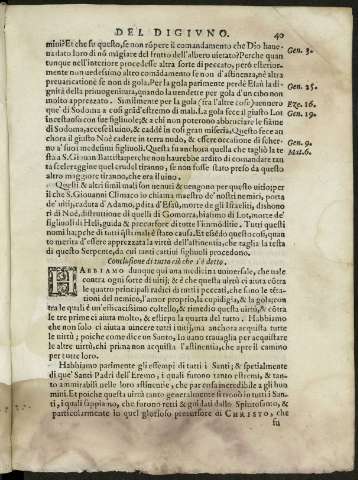 DEL DIGIVNO. 40
mini? Et che fu questo, se non rōpere il comandamento che Dio haue- Gen. 3.
nadato loro di nō mãgiare del frutto dell'albero uietato? Perche quan
tunque nell'interior procedesse altra sorte di peccato, però esterior-
mente non uedesimo altro comādamento se non d'astinenza, né altra
preuaricatione se non di gola. Per la gola parimente perdè Esaù la di- Gen. 25.
gnità della primogenitura, quando la uendette per gola d'un cibo non
molto apprezzato. Similmente per la gola (tra l'altre cose) uennero Eze. 16.
que' di Sodoma a così grād'estremo di mali. La gola fece il giusto Lot Gen. 19.
incestuoso con sue figliuole; & a chi non poterono abbruciare le fiāme
di Sodoma, accese il uino, & cadde in così gran miseria. Questa fece an
chora il giusto Noè cadere in terra nudo, & essere occasione di scher- Gen. 9.
no a' suoi medesimi figliuoli. Questa fu anchora quella che tagliò la te Mat. 6.
sta a S. Giouan Battista: perche non haurebbe ardito di comandare tan
ta sceleraggine quel crudel tiranno, se non fosse stato preso da questo
altro maggiore tiranno, che era il uino.
Questi & altri simili mali son uenuti & uengono per questo uitio: per
il che S. Giouanni Climaco lo chiama maestro de' nostri nemici, porta
de' uitij, caduta d'Adamo, pdita d'Esaù, morte de gli Israeliti, dishono
ri di Noè, distruttione di quelli di Gomorra, biasimo di Lot, morte de'
figliuoli di Heli, guida & precursore di tutte l'immōditie. Tutti questi
nomi ha; pche di tutti q̃sti mali è stato causa. Et essēdo questo così, quan
to merita d'essere apprezzata la virtù dell'astinentia, che taglia la testa
di questo Serpente, da cui tanti cattiui figliuoli procedono.
Conclusione di tutto ciò che s'è detto.
HABBIAMO dunque qui una medicina uniuersale, che uale
contra ogni sorte di uitij; & è che questa uirtù ci aiuta cōtra
le quattro principali radici di tutti i peccati, che sono le tēta-
tioni del nemico, l'amor proprio, la cupidigia, & la gola; con
tra le quali è un'efficacissimo coltello, & rimedio questa uirtù, & cōtra
le tre prime ci aiuta molto, & estirpa la quarta del tutto. Habbiamo
che non solo ci aiuta a uincere tutti i uitij, ma anchora acquista tutte
le uirtù; poiche come dice un Santo, In uano trauaglia per acquistare
le altre uirtù, chi prima non acquista l'astinentia, che apre il camino
per tutte loro.
Habbiamo parimente gli essempi di tutti i Santi; & spetialmente
di que' Santi Padri dell'Eremo, i quali furono tanto estremi, & tan-
to ammirabili nelle loro astinentie, che par cosa incredibile a gli huo
mini. Et poiche questa uirtù tanto generalmente si trouò in tutti i San-
ti, i quali sappiamo, che furono retti & guidati dallo Spiritosanto, &
particolarmente in quel glorioso precursore di CHRISTO, che
fu